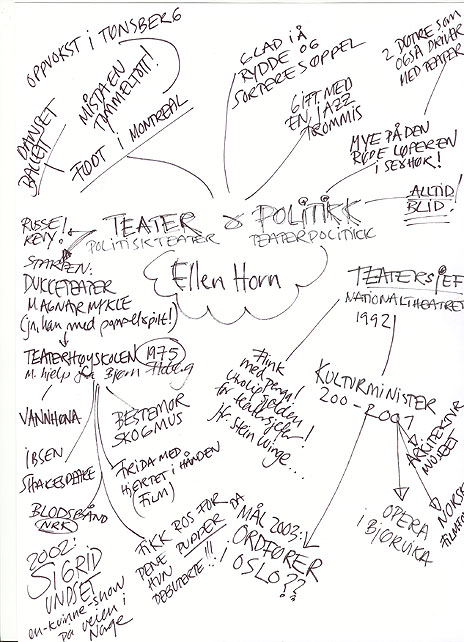 OPPVOKST I TØNSBERG
MISTA EN
TOMMELTOTT!
DANSET
BALLETT
FØDT I MONTREAL
GLAD I Å
RYDDE OG
SORTERE SØPPEL
GIFT MED
EN JAZZ
TROMMIS
2 DØTRE SOM
OGSÅ DRIVER
MED TEATER
MYE PÅ DEN
RØDE LØPEREN
I SE&HØR!
ALLTID
BLID!
TEATER & POLITIKK
POLITISK TEATER
TEATERPOLITIKK
Ellen Horn
RUSSE
REVY!
STARTEN:
DUKKETEATER
MAGNAR MYKLE
(jn, han med pompelspitt!)
TEATERHØYSKOLEN 1975
M. hjelp fra Bjørn
VANNHØNA
IBSEN
SHAKESPEARE
BLODSBÅND
NRK
2002:
SIGRID
UNDSET
en-kvinne-show
på veien i
Norge
BESTEMOR
SKOGMUS
FRIDA MED
HJERTET I HÅNDEN
(FILM)
FIKK ROS FOR
PENE PUPPER DA
HUN
DEBUTERTE!!!
TEATERSJEF
NATIONALTHEATRET
1992
Flink
med penga!
Utrolig sjelden
for teatersjefer!
Jfr. Stein Winge...
KULTURMINISTER
200-2001
ARKITEKTUR
MUSEET
NORSK
OPERA
I BJØRVIKA
MÅL 2003:
ORDFØRER
OSLO??